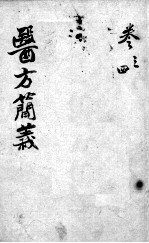 卷三四
醫方簡義